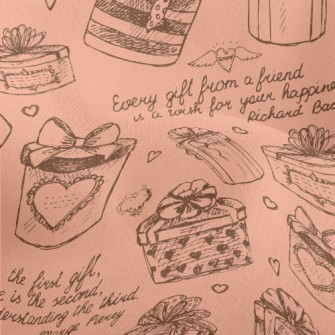 Every gift from a friend
is a wish for your happine
Richard Bac
the first gift,
e is the second,
derstanding the third.
Marge Piercy